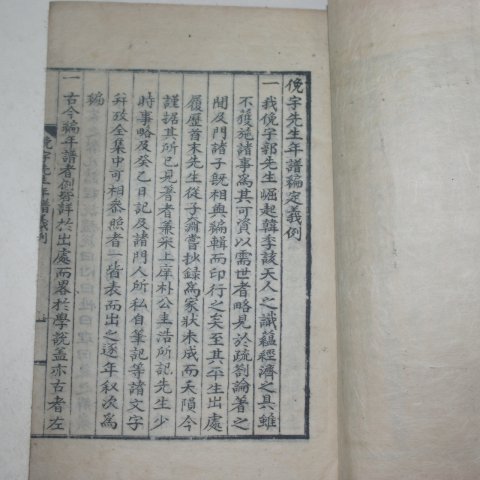 俛宇先生年譜編定義例
一我俛宇郭先生崛起韓季該天人之識蘊經濟之具雖
不獲施諸事爲其可資以需世者略見於疏劄論著之
間及門諸子旣相與編輯而印行之矣至其平生出處
履歷首末先生從子奫嘗抄錄爲家狀未成而夭隕今
謹据其所已見著者兼采上庠朴公圭浩所記先生少
時事略及癸乙日記及諸門人所私自筆記等諸文字
幷攷全集中可相叅照者一皆表而出之逐年叙次爲
編
一古今編年譜者例皆詳於出處而畧於學說盖亦古者左
俛宇先生年譜義例